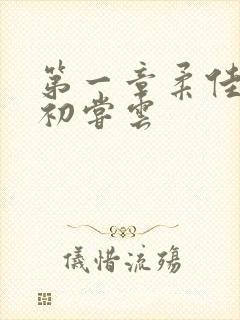 第一章柔佳
初尝云
仪惜流殇